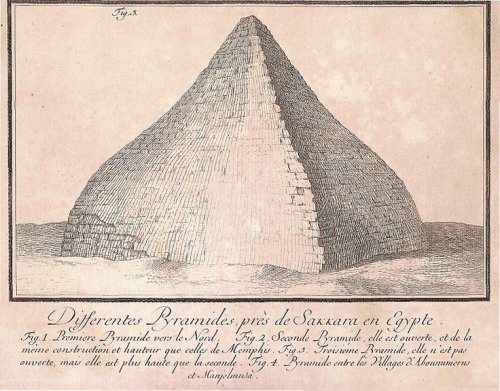 Fig. 3.
Differentes Pyramides, près de Sakkara en Egypte.
Fig. 1. Premiere Pyramide vers le Nord. Fig. 2. Seconde Pyramide, elle est ouverte, et de la
meme construction et hauteur que celles de Memphis. Fig. 3. Troisieme Pyramide, elle n'est pas
ouverte, mais elle est plus haute que la seconde. Fig. 4. Pyramide entre les Villages d'Aboumumerus
et Manjelmusa.